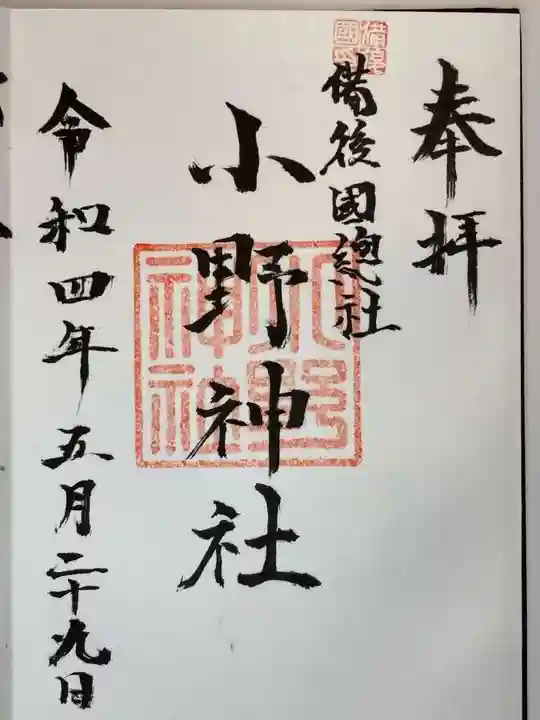 奉拝
備後國總社
小野神社
令和四年五月二十九日
小野
神社